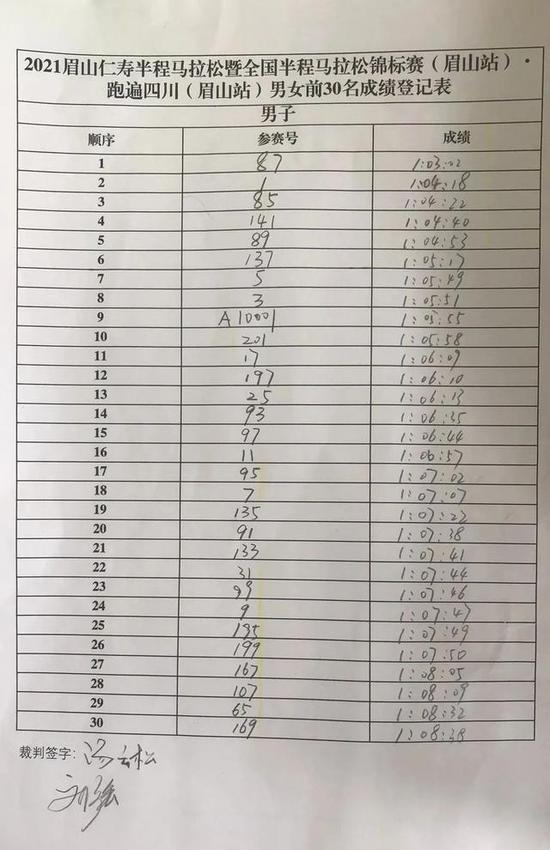 2021眉山仁寿半程马拉松暨全国半程马拉松锦标赛（眉山站）·
跑遍四川（眉山站）男女前30名成绩登记表
男子
顺序 参赛号 成绩
1 87 1:03:02
2 1 1:04:18
3 85 1:04:22
4 141 1:04:40
5 89 1:04:53
6 137 1:05:17
7 5 1:05:49
8 3 1:05:51
9 A10001 1:05:55
10 201 1:05:58
11 17 1:06:09
12 197 1:06:10
13 25 1:06:13
14 93 1:06:35
15 97 1:06:44
16 11 1:06:57
17 95 1:07:02
18 7 1:07:07
19 135 1:07:22
20 91 1:07:38
21 133 1:07:41
22 31 1:07:44
23 99 1:07:46
24 9 1:07:47
25 195 1:07:49
26 199 1:07:50
27 167 1:08:05
28 107 1:08:09
29 65 1:08:32
30 169 1:08:38
裁判签字: